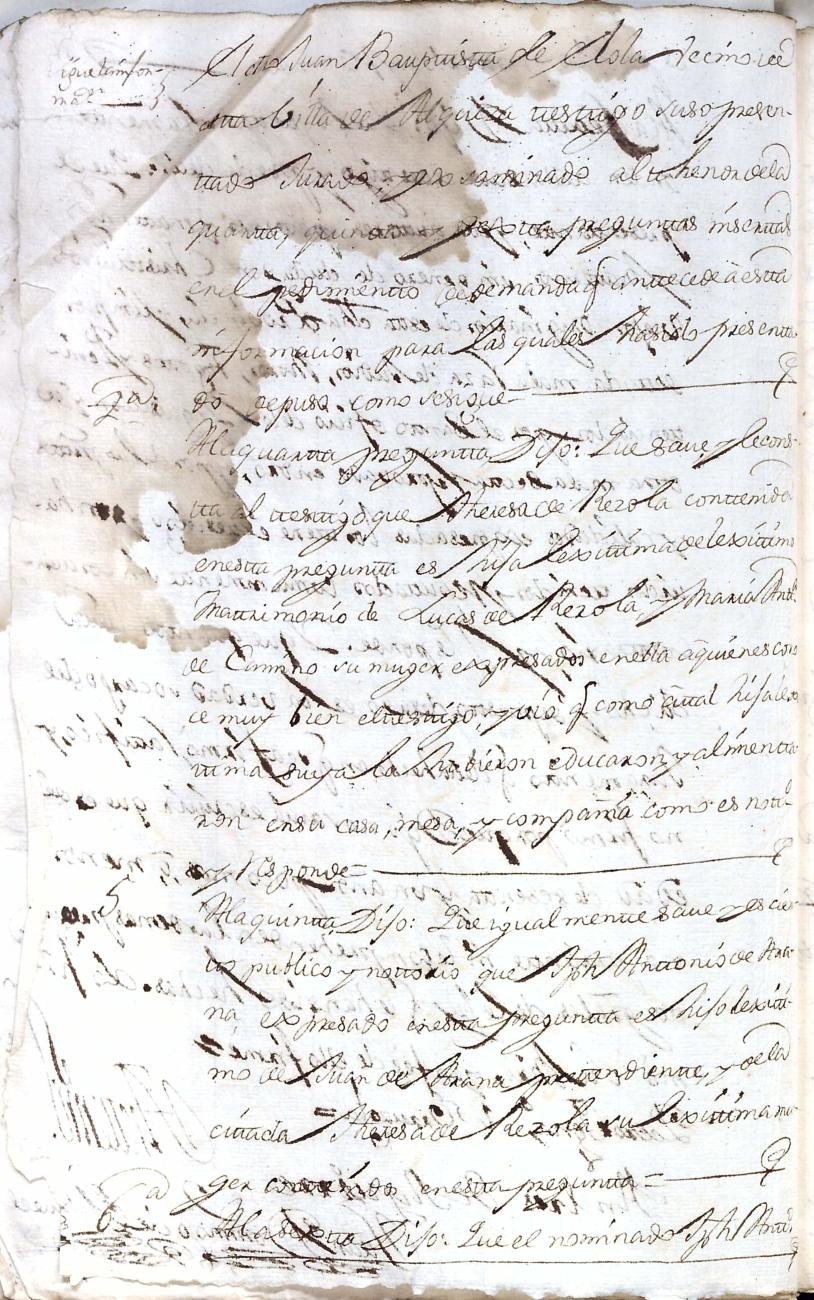 Sigue la infor-
maón
El dho Juan Bauptista de Elola vecino de
esta Villa de Alquiza testigo suso presen-
tado Jurado, y examinado al thenor de la
quarta, quinta, y sexta preguntas insertas
en el pedimento de demanda q antecede a esta
informacion para las quales ha sido presenta
do depuso como se sigue
4a
A la quarta pregunta Dijo: Que save y le cons-
ta al testigo que Theresa de Rezola contenida
en esta pregunta es hija lexitima de lexitimo
Matrimonio de Lucas de Rezola y Maria Anta
de Camino su muger expresados en ella a quienes cono
ce muy bien el testigo, y vio q como a tal hija lex
tima suya la hubieron educaron y alimenta
ron en su casa, mesa, y compañia como es noto
rio y Responde
5
A la quinta Dijo: Que igualmente save y es cier
to publico y notorio que Jph Antonio de Ara-
na, expresado en esta pregunta es hijo lexiti-
mo de Juan de Arana pretendiente, y de la
citada Theresa de Rezola su lexitima mu-
ger contenidos en esta pregunta
6a
A la sexta Dijo: Que el nominado Jph Anto